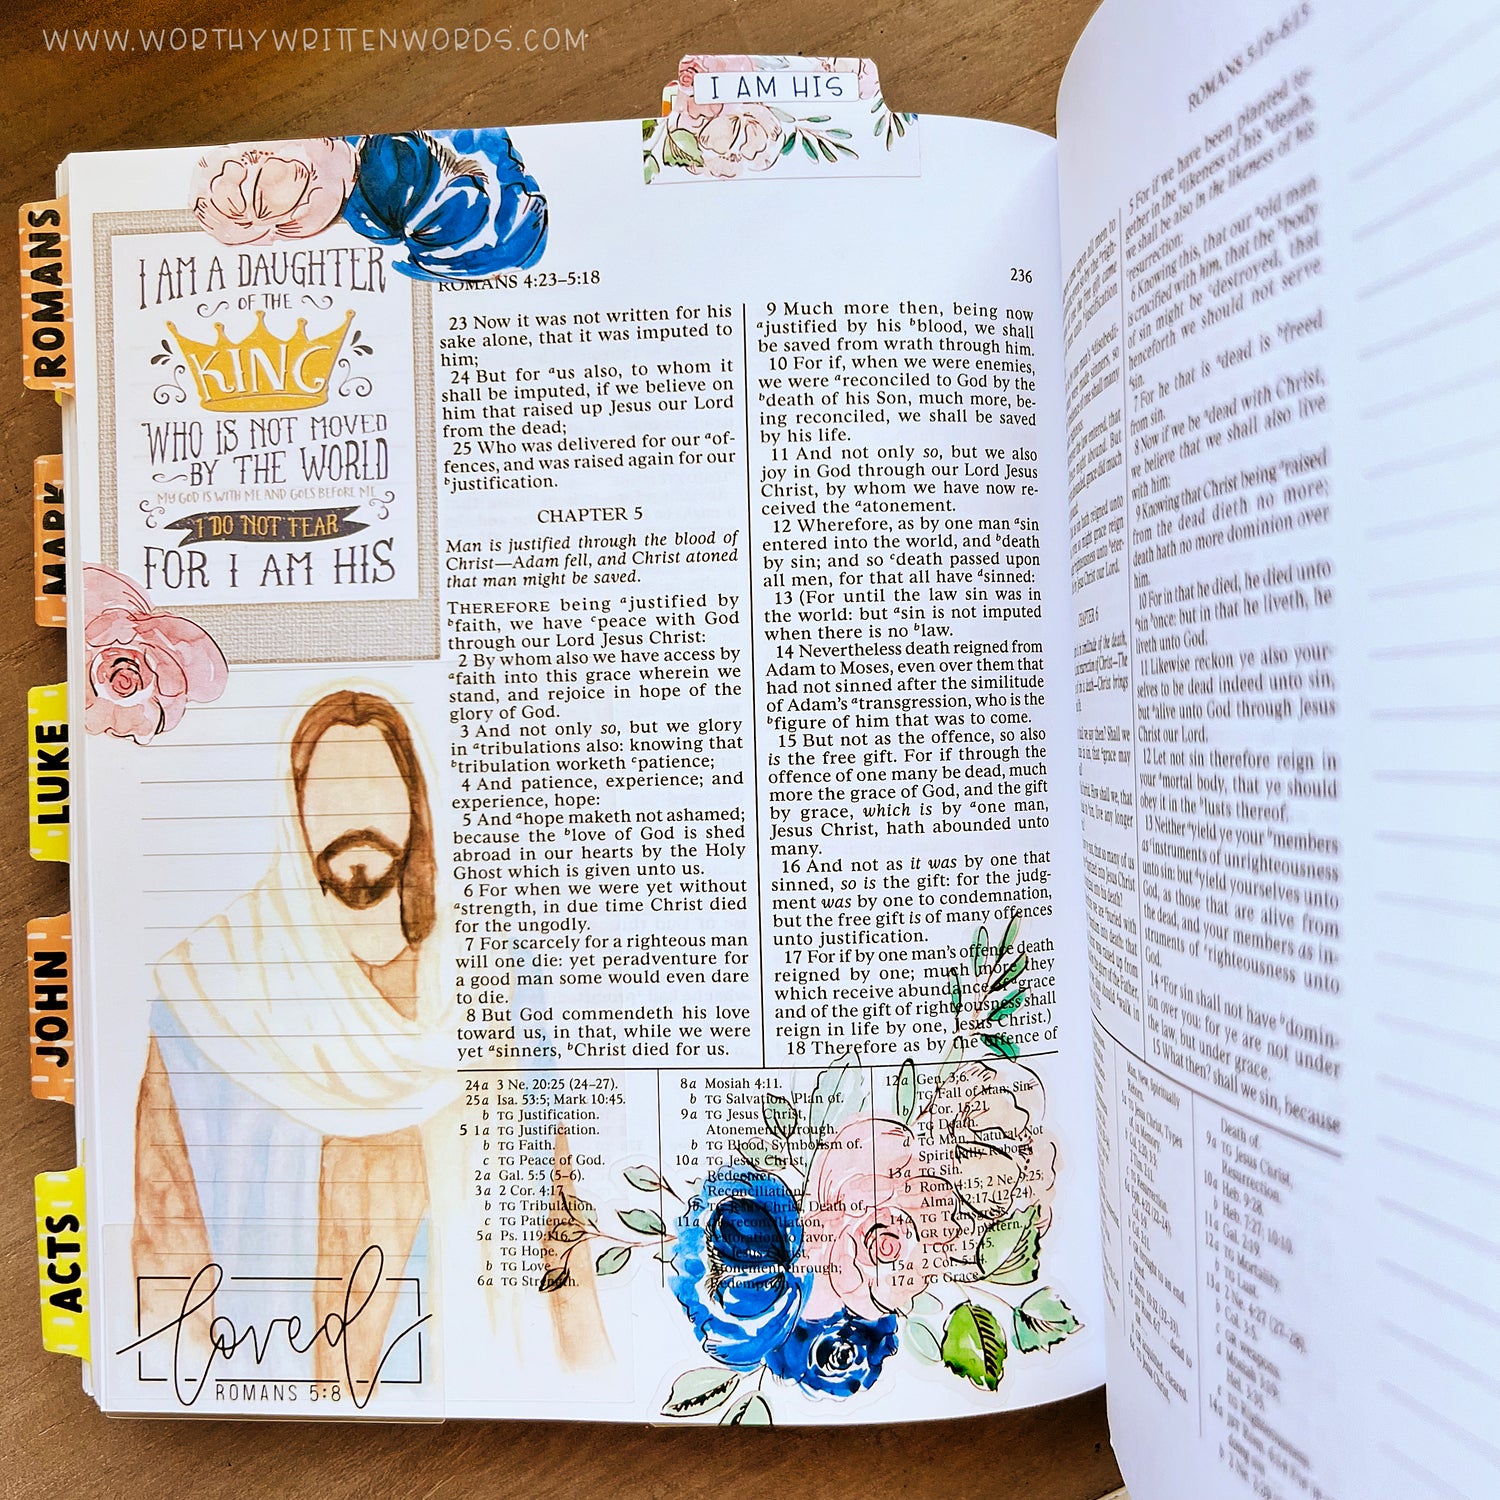 WWW.WORTHYWRITTENWORDS.COM
I AM HIS
ROMANS
MARK
LUKE
JOHN
ACTS
I AM A DAUGHTER
OF THE
KING
WHO IS NOT MOVED
BY THE WORLD
MY GOD IS WITH ME AND GOES BEFORE ME
I DO NOT FEAR
FOR I AM HIS
loved
ROMANS 5:8
ROMANS 4:23–5:18
236
23 Now it was not written for his
sake alone, that it was imputed to
him;
24 But for ᵃus also, to whom it
shall be imputed, if we believe on
him that raised up Jesus our Lord
from the dead;
25 Who was delivered for our ᵃof-
fences, and was raised again for our
ᵇjustification.
CHAPTER 5
Man is justified through the blood of
Christ—Adam fell, and Christ atoned
that man might be saved.
THEREFORE being ᵃjustified by
ᵇfaith, we have ᶜpeace with God
through our Lord Jesus Christ:
2 By whom also we have access by
ᵃfaith into this grace wherein we
stand, and rejoice in hope of the
glory of God.
3 And not only so, but we glory
in ᵃtribulations also: knowing that
ᵇtribulation worketh ᶜpatience;
4 And patience, experience; and
experience, hope:
5 And ᵃhope maketh not ashamed;
because the ᵇlove of God is shed
abroad in our hearts by the Holy
Ghost which is given unto us.
6 For when we were yet without
ᵃstrength, in due time Christ died
for the ungodly.
7 For scarcely for a righteous man
will one die: yet peradventure for
a good man some would even dare
to die.
8 But God commendeth his love
toward us, in that, while we were
yet ᵃsinners, ᵇChrist died for us.
9 Much more then, being now
ᵃjustified by his ᵇblood, we shall
be saved from wrath through him.
10 For if, when we were enemies,
we were ᵃreconciled to God by the
ᵇdeath of his Son, much more, be-
ing reconciled, we shall be saved
by his life.
11 And not only so, but we also
joy in God through our Lord Jesus
Christ, by whom we have now re-
ceived the ᵃatonement.
12 Wherefore, as by one man ᵃsin
entered into the world, and ᵇdeath
by sin; and so ᶜdeath passed upon
all men, for that all have ᵈsinned:
13 (For until the law sin was in
the world: but ᵃsin is not imputed
when there is no ᵇlaw.
14 Nevertheless death reigned from
Adam to Moses, even over them that
had not sinned after the similitude
of Adam's ᵃtransgression, who is the
ᵇfigure of him that was to come.
15 But not as the offence, so also
is the free gift. For if through the
offence of one many be dead, much
more the grace of God, and the gift
by grace, which is by ᵃone man,
Jesus Christ, hath abounded unto
many.
16 And not as it was by one that
sinned, so is the gift: for the judg-
ment was by one to condemnation,
but the free gift is of many offences
unto justification.
17 For if by one man's offence death
reigned by one; much more they
which receive abundance of ᵃgrace
and of the gift of righteousness shall
reign in life by one, Jesus Christ.)
18 Therefore as by the offence of
24a 3 Ne. 20:25 (24–27).
25a Isa. 53:5; Mark 10:45.
b TG Justification.
5 1a TG Justification.
b TG Faith.
c TG Peace of God.
2a Gal. 5:5 (5–6).
3a 2 Cor. 4:17.
b TG Tribulation.
c TG Patience.
5a Ps. 119:116.
TG Hope.
b TG Love.
6a TG Strength.
8a Mosiah 4:11.
b TG Salvation, Plan of.
9a TG Jesus Christ,
Atonement through.
b TG Blood, Symbolism of.
10a TG Jesus Christ,
Redeemer;
Reconciliation.
b TG Jesus Christ, Death of.
11a reconciliation,
restoration to favor.
TG Jesus Christ,
Atonement through;
Redemption.
12a Gen. 3:6.
TG Fall of Man; Sin.
b 1 Cor. 15:21.
c TG Death.
d TG Man, Natural, Not
Spiritually Reborn.
13a TG Sin.
b Rom. 4:15; 2 Ne. 9:25;
Alma 42:17 (12–24).
14a TG Transgress.
b GR type, pattern.
1 Cor. 15:45.
15a 2 Cor. 5:14.
17a TG Grace.
ROMANS 5:19–6:15
5 For if we have been planted to-
gether in the ᵃlikeness of his ᵇdeath,
we shall be also in the likeness of his
ᶜresurrection:
6 Knowing this, that our ᵃold man
is crucified with him, that the ᵇbody
of sin might be ᶜdestroyed, that
henceforth we should not serve
ᵈsin.
7 For he that is ᵃdead is ᵇfreed
from sin.
8 Now if we be ᵃdead with Christ,
we believe that we shall also live
with him:
9 Knowing that Christ being ᵃraised
from the dead dieth no more;
death hath no more dominion over
him.
10 For in that he died, he died unto
ᵃsin ᵇonce: but in that he liveth, he
liveth unto God.
11 Likewise reckon ye also your-
selves to be dead indeed unto sin,
but ᵃalive unto God through Jesus
Christ our Lord.
12 Let not sin therefore reign in
your ᵃmortal body, that ye should
obey it in the ᵇlusts thereof.
13 Neither ᵃyield ye your ᵇmembers
as ᶜinstruments of unrighteousness
unto sin: but ᵈyield yourselves unto
God, as those that are alive from
the dead, and your members as in-
struments of ᵉrighteousness unto
God.
14 ᵃFor sin shall not have ᵇdomin-
ion over you: for ye are not under
the law, but under grace.
15 What then? shall we sin, because
CHAPTER 6
Death of.
9a TG Jesus Christ,
Resurrection.
10a Heb. 9:28.
b Heb. 7:27; 10:10.
11a Gal. 2:19.
12a TG Mortality.
b TG Lust.